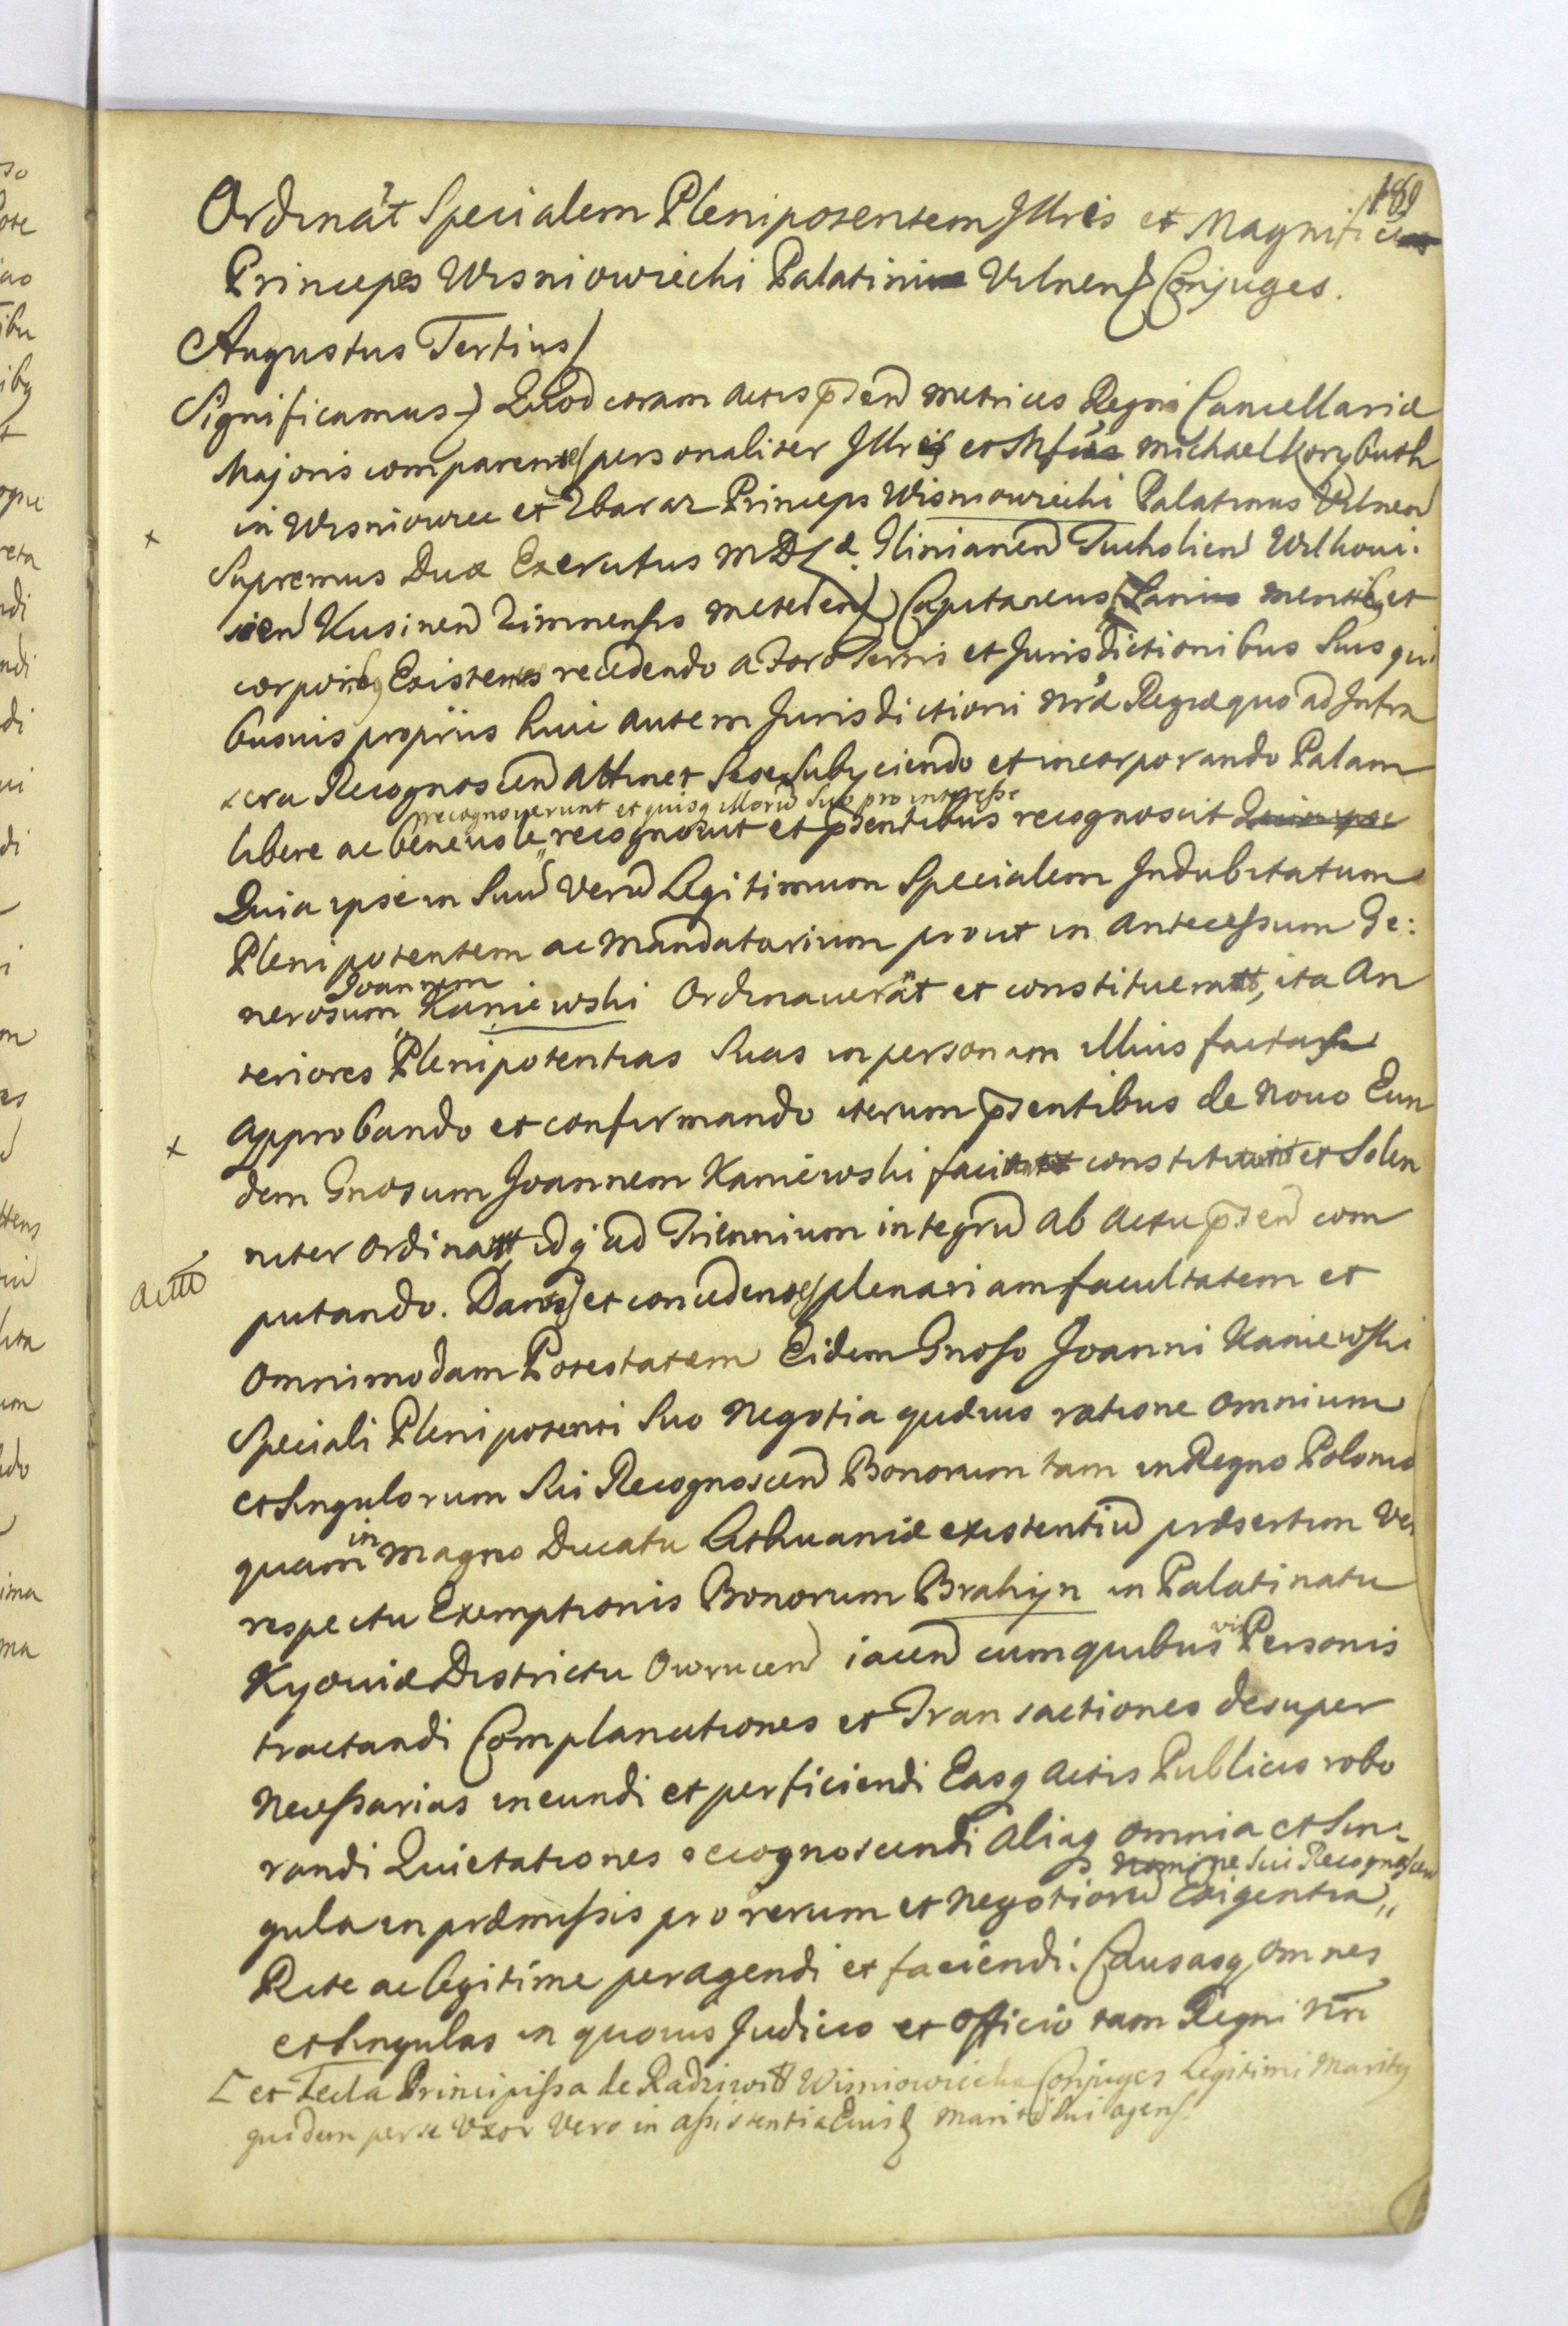 189
Ordinat Specialem Plenipotentem Illris et Magnifici
Princeps Wisniowiecki Palatini Vilnens Conjuges.
Augustus Tertius
Significamus Quod coram Actis pnten Metrices Regni Cancellariæ
Majoris comparentes personaliter Illris et Mfcus Michael Korybuth
in Wisniowiec et Zbaraz Princeps Wisniowiecki Palatinus Vilnen
Supremus Dux Exercitus MDL Glinianen Tucholien Wilkoui:
scien Kusinen Zimnensis Metelen Capitaneus Sani mentibq et
corporibq Existentes recedendo a Foro Terris et Jurisdictionibus Suis qui
busuis propriis huic autem Jurisdictioni nræ Regiæ quo ad Infra
scra Recognoscen attinet Sese Subyciendo et incorporando Palam
recognoverunt et quisq illorum Suo pro interesse
libere ac beneuole recognouit et pntentibus recognoscit
Quia ipse in Suum Verum Legitimum Specialem Indubitatum
Plenipotentem ac Mandatarium prout in Antecessum Ge:
Joannem
nerosum Kaniewski Ordinauerat et constituerat, ita An
teriores Plenipotentias Suas in personam illius factas
approbando et confirmando iterum pntentibus de Nouo Eun
dem Gnosum Joannem Kaniewski facit constituit et Solen
niter Ordinat idq ad Triennium integrum ab Actu pnten com
putando. Dantes et concedentes plenariam facultatem et
Omnimodam Potestatem Eidem Gnoso Joanni Kaniewski
Speciali Plenipotenti Suo Negotia quævis ratione Omnium
et Singulorum Sui Recognoscen Bonorum tam in Regno Poloniæ
in
quam Magno Ducatu Lithuaniæ existentium præsertim Vero
respectu Exemptionis Bonorum Brahyn in Palatinatu
vis
Kyouiæ Districtu Owrucen iacen cum quibus Personis
tractandi Complanationes et Transactiones desuper
Necessarias ineundi et perficiendi Easq Actis Publicis robo
randi Quietationes recognoscendi Aliaq omnia et Sin:
nomine Sui Recognoscen
gula in præmissis pro rerum et Negotiorum Exigentia
Rite ac legitime peragendi et faciendi: Causasq omnes
et Singulas in quouis Judicio et Officio tam Regni nri
[ et Tecla Principissa de Radziwill Wisniowiecka Conjuges Legitimi Maritq
quidem per se Uxor Vero in assistentia Eiusd Mariti Sui agens